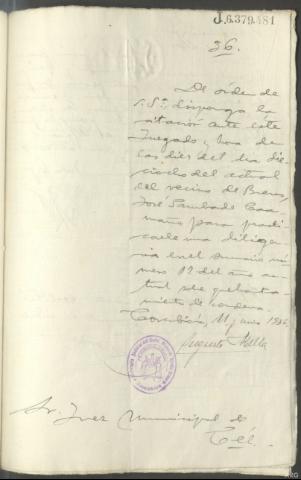 J.6.379.481
36.
De orden de
S.Sª. disponga la
citación ante este
Juzgado y hora de
las diez del dia die-
ciocho del actual
del vecino de Brens,
José Sambade Caa-
maño para practi-
carle una diligen-
cia en el sumario nú-
mero 12 del año ac-
tual sobre quebranta-
miento de condena.
Corcubión, 11 junio 1936.
Sr. Juez Municipal de
Cée.